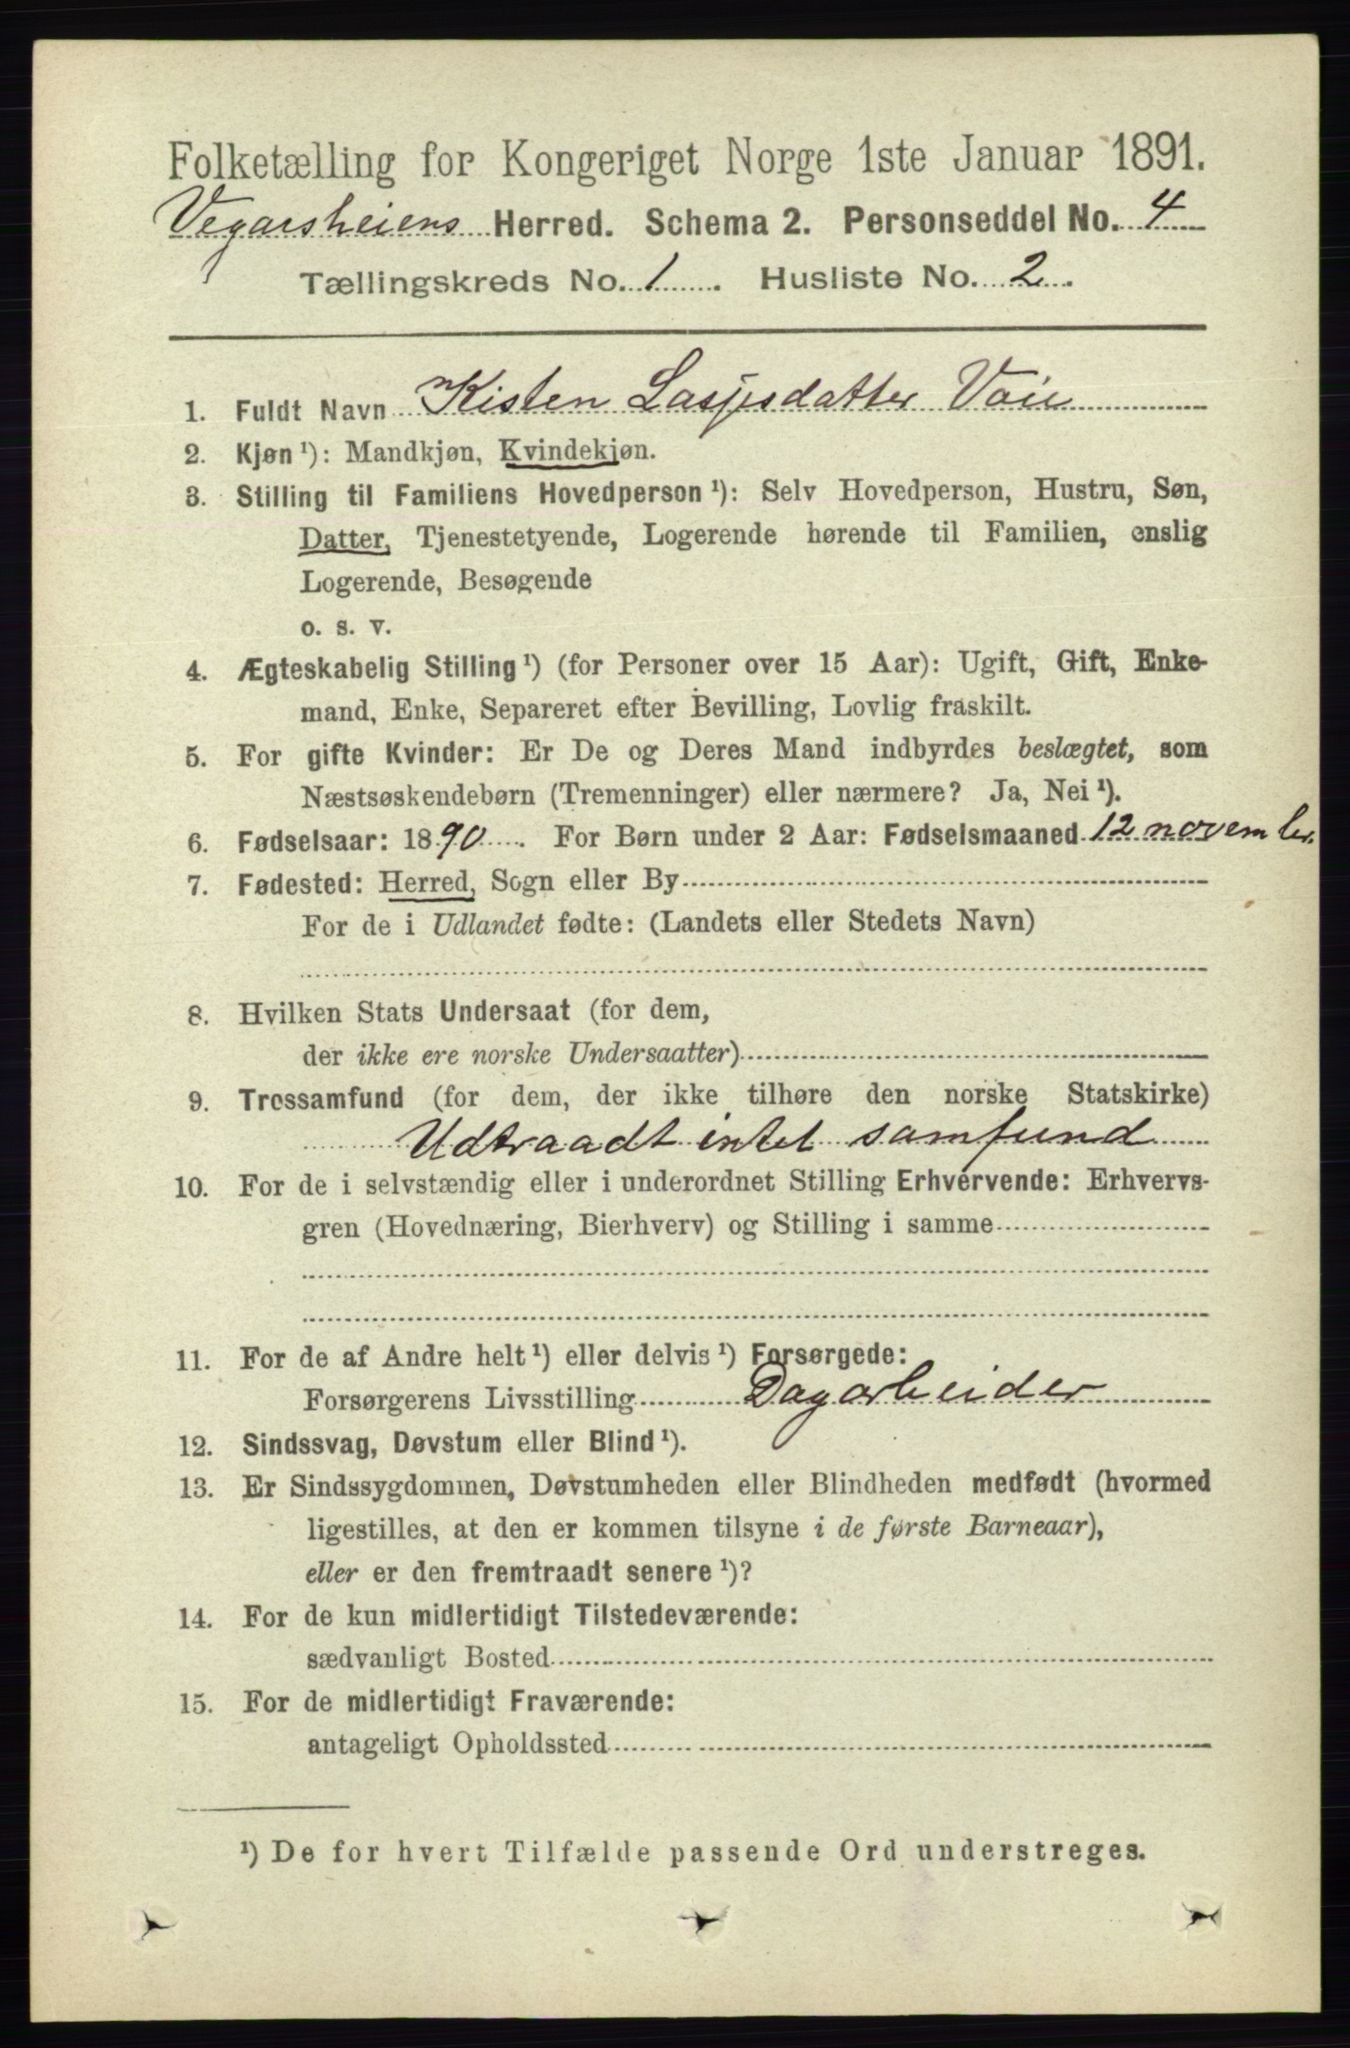 Folketælling for Kongeriget Norge 1ste Januar 1891.
Vegarsheiens Herred. Schema 2. Personseddel No. 4
Tællingskreds No. 1. Husliste No. 2.
1. Fuldt Navn Kisten Lasjesdatter Vaie
2. Kjøn ¹): Mandkjøn, Kvindekjøn.
3. Stilling til Familiens Hovedperson ¹): Selv Hovedperson, Hustru, Søn,
Datter, Tjenestetyende, Logerende hørende til Familien, enslig
Logerende, Besøgende
o. s. v.
4. Ægteskabelig Stilling ¹) (for Personer over 15 Aar): Ugift, Gift, Enke-
mand, Enke, Separeret efter Bevilling, Lovlig fraskilt.
5. For gifte Kvinder: Er De og Deres Mand indbyrdes beslægtet, som
Næstsøskendebørn (Tremenninger) eller nærmere? Ja, Nei ¹).
6. Fødselsaar: 1890. For Børn under 2 Aar: Fødselsmaaned 12 november.
7. Fødested: Herred, Sogn eller By
For de i Udlandet fødte: (Landets eller Stedets Navn)
8. Hvilken Stats Undersaat (for dem,
der ikke ere norske Undersaatter)
9. Trossamfund (for dem, der ikke tilhøre den norske Statskirke)
Udtraadt intet samfund
10. For de i selvstændig eller i underordnet Stilling Erhvervende: Erhvervs-
gren (Hovednæring, Bierhverv) og Stilling i samme
11. For de af Andre helt ¹) eller delvis ¹) Forsørgede:
Forsørgerens Livsstilling Dagarbeider
12. Sindssvag, Døvstum eller Blind ¹).
13. Er Sindssygdommen, Døvstumheden eller Blindheden medfødt (hvormed
ligestilles, at den er kommen tilsyne i de første Barneaar),
eller er den fremtraadt senere ¹)?
14. For de kun midlertidigt Tilstedeværende:
sædvanligt Bosted
15. For de midlertidigt Fraværende:
antageligt Opholdssted
¹) De for hvert Tilfælde passende Ord understreges.